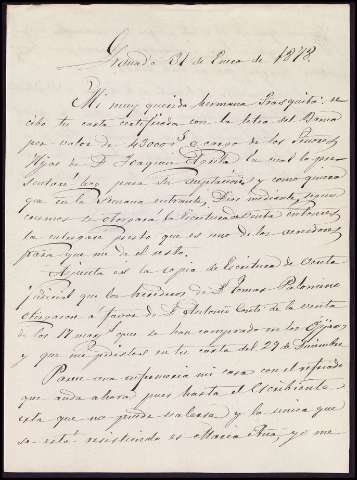 Granada 31 de Enero de 1878.
Mi muy querida hermana Frasquita: re
cibo tu carta certificada con la letra del Banco
por valor de 43000 a cargo de los Señores
Hijos de D. Joaquin Agrela la cual la pre
sentaré hoy para su aceptacion y como quiera
que en la semana entrante, Dios mediante,
se otorgará la Escritura de venta entonces
la entregaré puesto que es uno de los vendedores
para que me dé el resto.
Adjunta es la copia de Escritura de venta
judicial que los herederos de D. Tomas Palomino
otorgaron á favor de D. Antonio de la venta
de los 17 que se han comprado en los Ojijares
y que me pedistes en tu carta del 29 de Diciembre
Parece una enfermeria mi casa con el resfriado
que anda ahora pues hasta el Escribiente
esta que no puede valerse y la unica que
se está resistiendo es Maria Ana, yo me